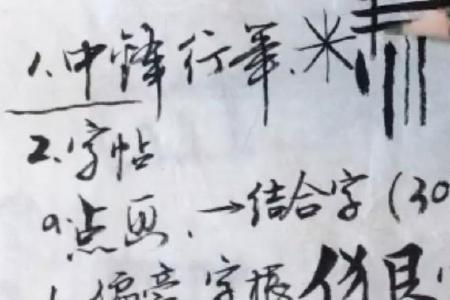 1、中锋行笔、米
2、字帖
a.点画、→结合字(30
偏旁 字根